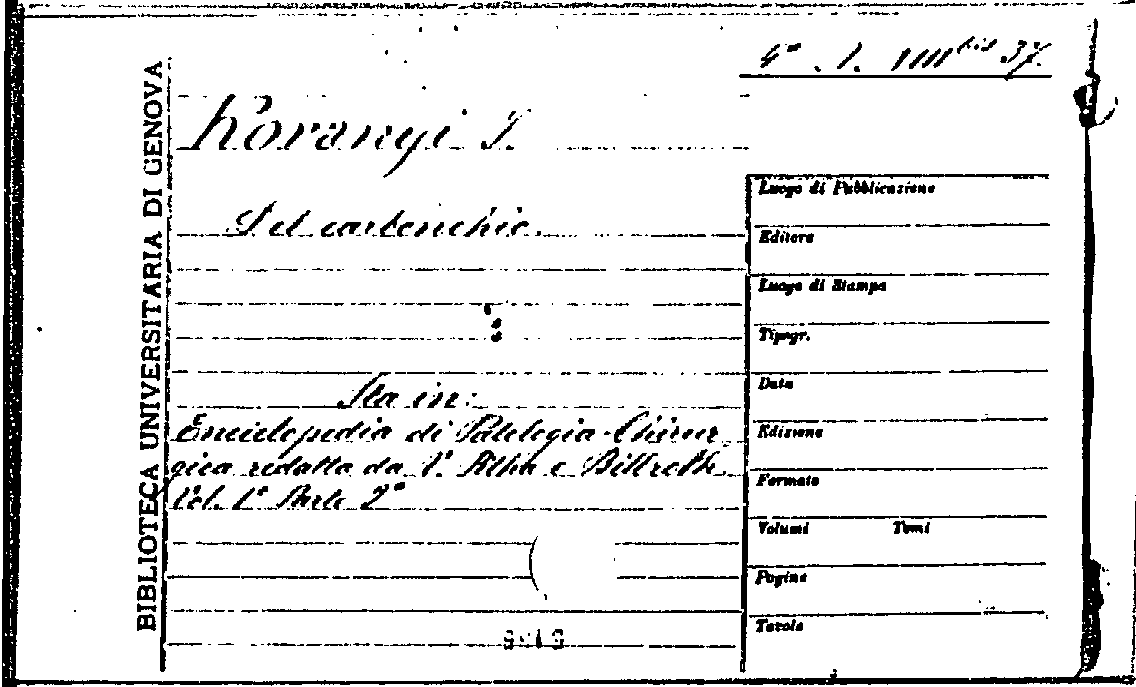 4ª . 1. VIII bis 37.
BIBLIOTECA UNIVERSITARIA DI GENOVA
Koranyi J.
Del carbonchio.
Sta in:
Enciclopedia di Patologia Chirur
gica redatta da Pitha e Billroth.
Vol. 1º Parte 2ª
Luogo di Pubblicazione
Editore
Luogo di Stampa
Tipogr.
Data
Edizione
Formato
Volumi Tomi
Pagine
Tavole